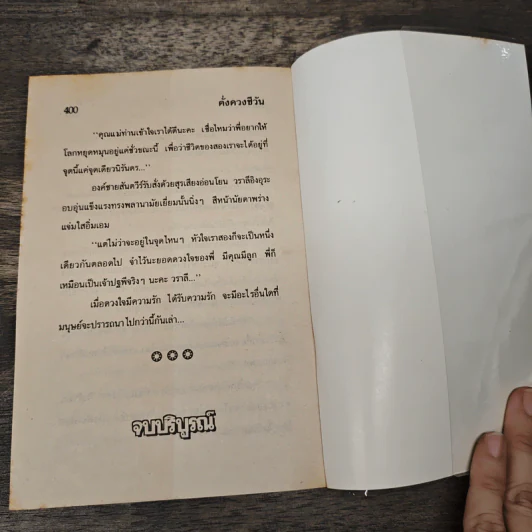 400
คั่งดวงชีวัน
"คุณแม่ท่านเข้าใจเราได้ดีนะคะ เชื่อไหมว่าพี่อยากให้
โลกหยุดหมุนอยู่แค่ชั่วขณะนี้ เพื่อว่าชีวิตของสองเราจะได้อยู่ที่
จุดนี้แค่จุดเดียวนิรันดร..."
องค์ชายสันตวีร์รับสั่งด้วยสุรเสียงอ่อนโยน วราลีอิงอุระ
อบอุ่นแข็งแรงทรงพลานามัยเยี่ยมนั้นนิ่งๆ สีหน้านัยตาพร่าง
แจ่มใสอิ่มเอม
"แต่ไม่ว่าจะอยู่ในจุดไหนๆ หัวใจเราสองก็จะเป็นหนึ่ง
เดียวกันตลอดไป จำไว้นะยอดดวงใจของพี่ มีคุณมีลูก พี่ก็
เหมือนเป็นเจ้าปฐพีจริงๆ นะคะ วราลี..."
เมื่อดวงใจมีความรัก ได้รับความรัก จะมีอะไรอื่นใดที่
มนุษย์จะปรารถนาไปกว่านี้กันเล่า...
จบบริบูรณ์